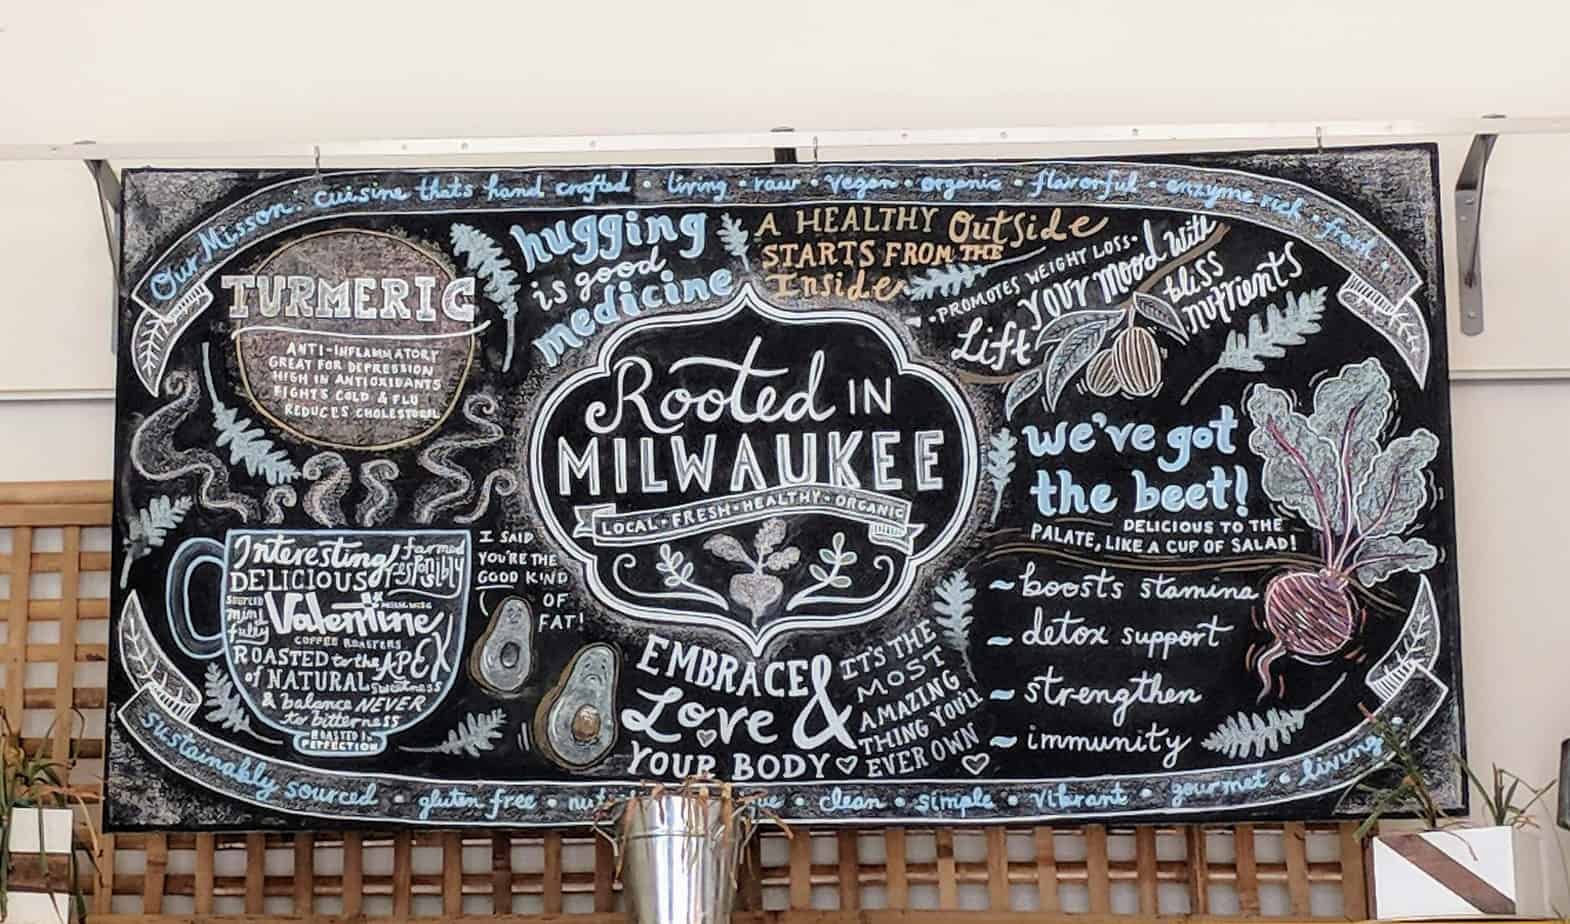 Our Misson: cuisine thats hand crafted • living • raw • vegan • organic • flavorful • enzyme rich • fresh •
TURMERIC
ANTI-INFLAMMATORY
GREAT FOR DEPRESSION
HIGH IN ANTIOXIDANTS
FIGHTS COLD & FLU
REDUCES CHOLESTEROL
hugging
is good
medicine
A HEALTHY Outside
STARTS FROM THE
Inside
• PROMOTES WEIGHT LOSS •
Lift your mood with
bliss
nutrients
Rooted IN
MILWAUKEE
LOCAL • FRESH • HEALTHY • ORGANIC
we've got
the beet!
DELICIOUS TO THE
PALATE, LIKE A CUP OF SALAD!
~ boosts stamina
~ detox support
~ strengthen
~ immunity
Interesting! farmed
DELICIOUS responsibly
sourced
mindfully
Valentine
COFFEE ROASTERS
ROASTED to the APEX
of NATURAL sweetness
& balance NEVER
to bitterness
ROASTED to
PERFECTION
I SAID,
YOU'RE THE
GOOD KIND
OF
FAT!
EMBRACE &
Love
YOUR BODY
IT'S THE
MOST
AMAZING
THING YOU'LL
EVER OWN
sustainably sourced • gluten free • clean • simple • vibrant • gourmet • living